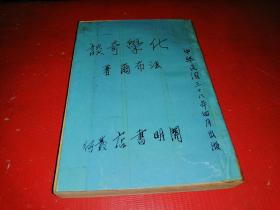 談奇學化
著爾布法
行發店書明開
中華民國三十八年四月出版